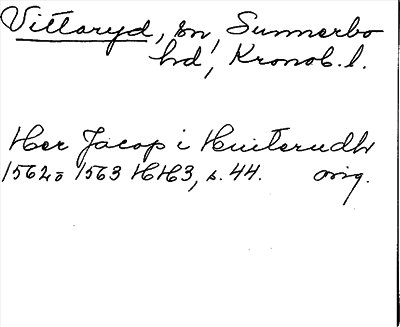 Vittaryd, sn, Sunnerbo
hd, Kronob. l.
Her Jacop i Huiterudh
1562ō 1563 HH3, s. 44. orig.